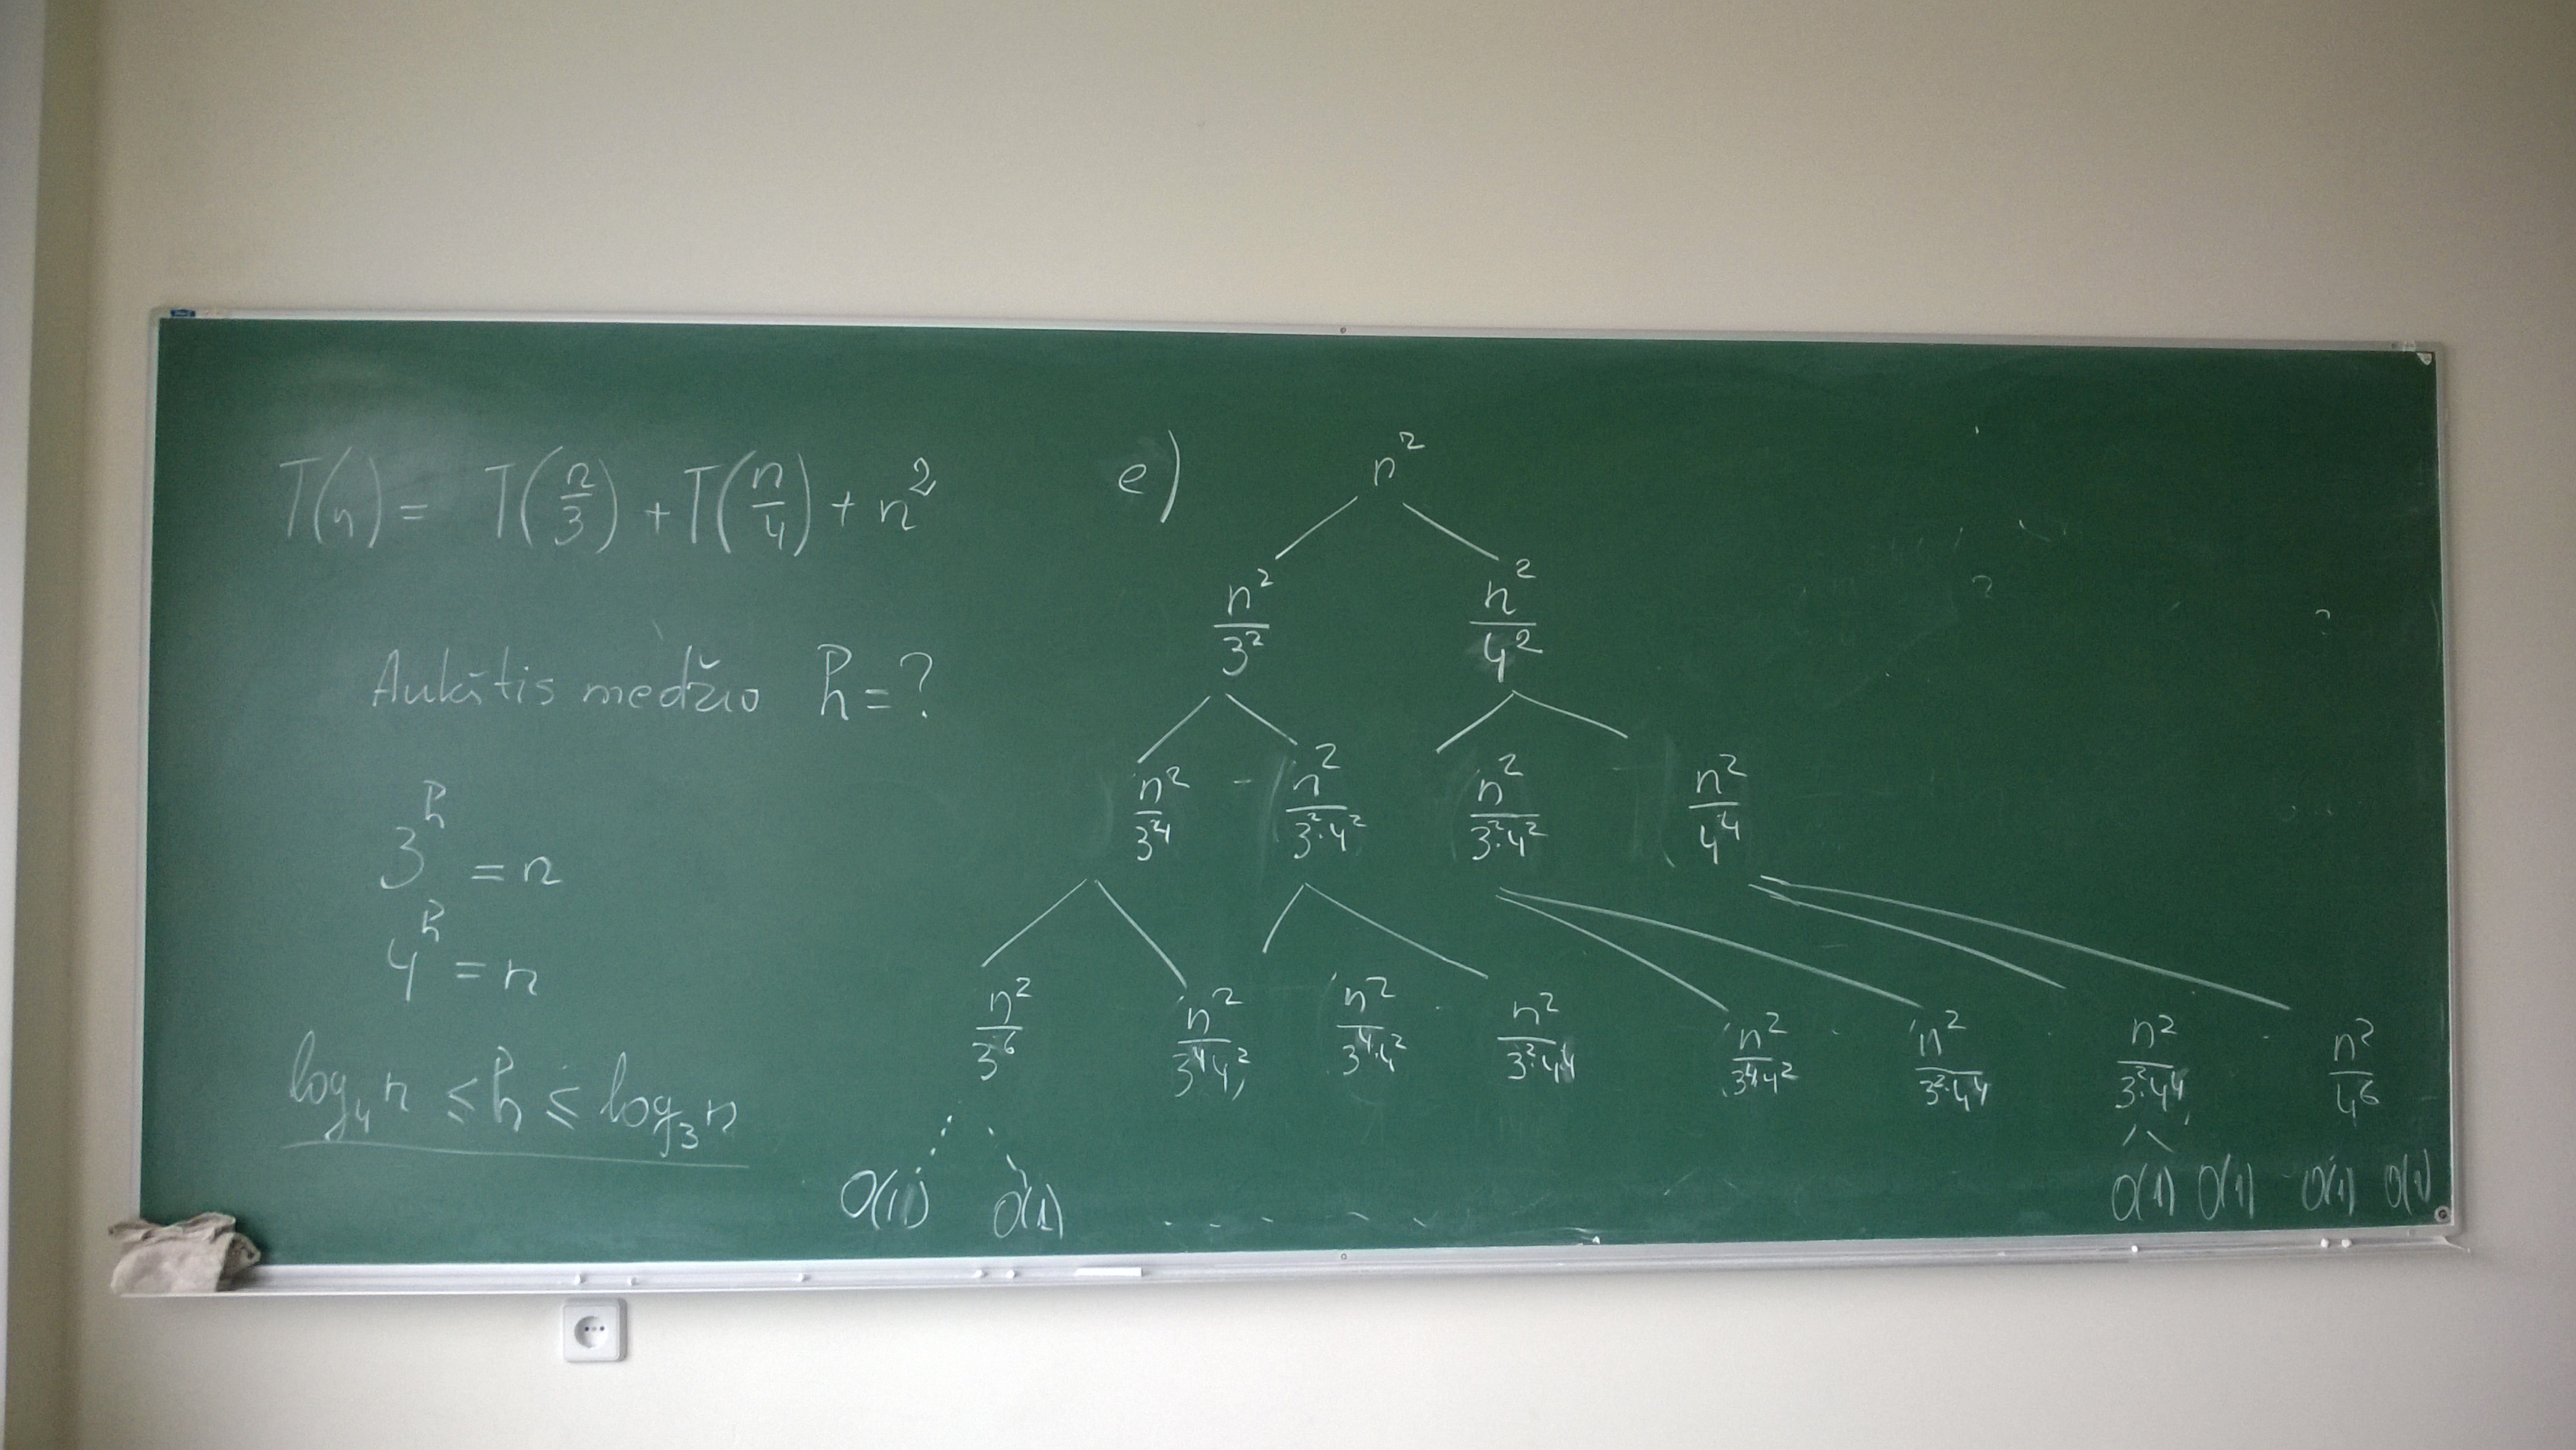 T(n) = T(n/3) + T(n/4) + n²
Aukštis medžio h = ?
3^h = n
4^h = n
log₄ n ≤ h ≤ log₃ n
e)
n²
n²/3² n²/4²
n²/3⁴ n²/(3²·4²) n²/(3²·4²) n²/4⁴
n²/3⁶ n²/(3⁴4²) n²/(3⁴·4²) n²/(3²·4⁴) n²/(3⁴4²) n²/(3²·4⁴) n²/(3²·4⁴) n²/4⁶
O(1) O(1) - - - - - O(1) O(1) O(1) O(1)